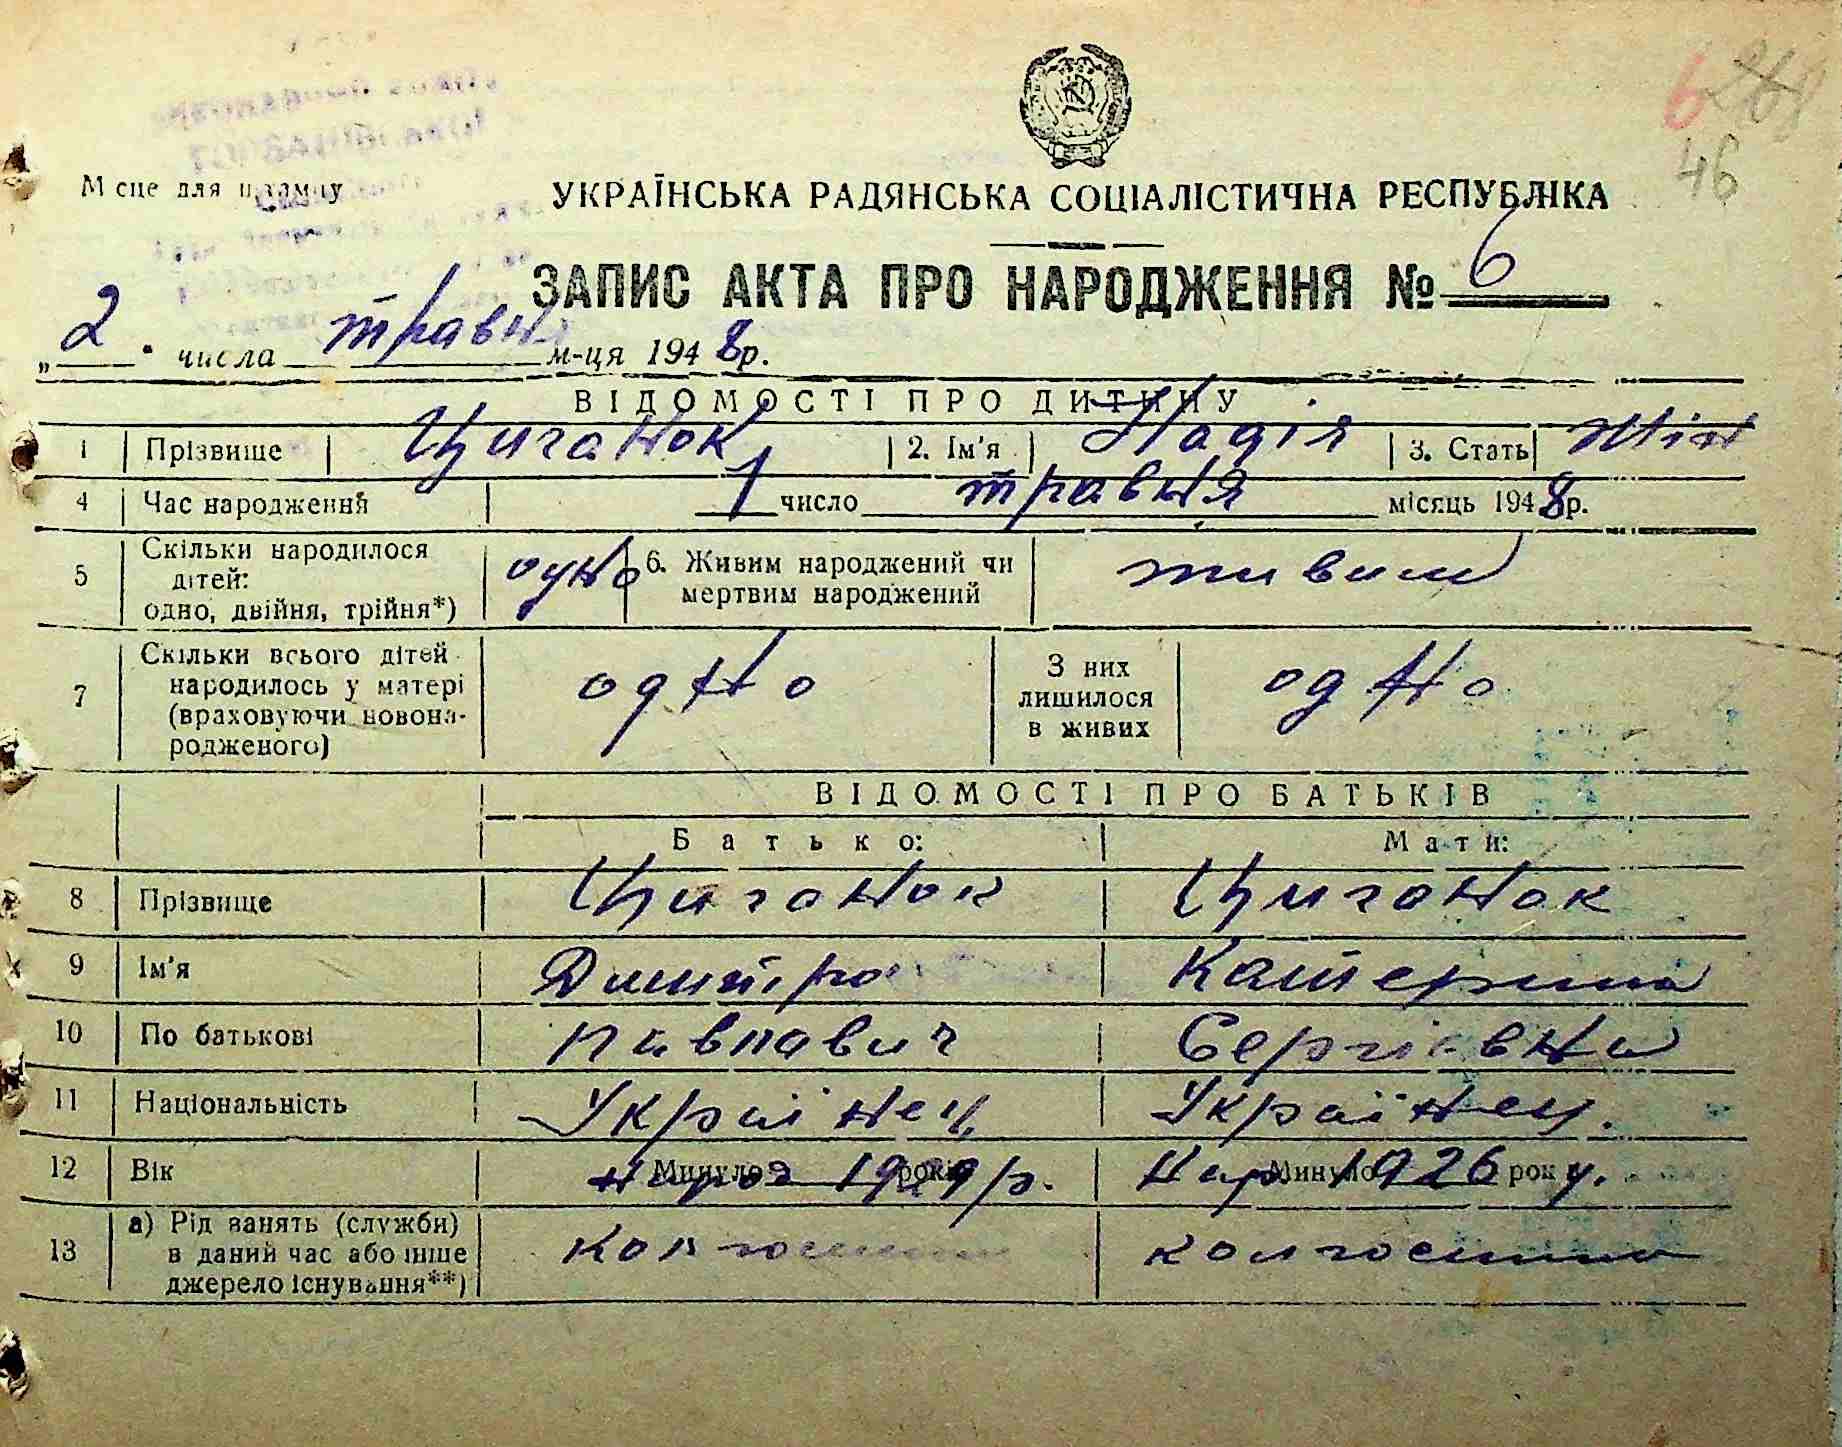 6 268
46
Місце для штампу
УКРАЇНСЬКА РАДЯНСЬКА СОЦІАЛІСТИЧНА РЕСПУБЛІКА
ЗАПИС АКТА ПРО НАРОДЖЕННЯ № 6
„2“ числа травня м-ця 1948р.
ВІДОМОСТІ ПРО ДИТИНУ
1 Прізвище Циганок 2. Ім'я Надія 3. Стать жін
4 Час народження 1 число травня місяць 1948р.
5 Скільки народилося дітей: одно, двійня, трійня*) одно 6. Живим народжений чи мертвим народжений живим
7 Скільки всього дітей народилось у матері (враховуючи новонародженого) одно З них лишилося в живих одно
ВІДОМОСТІ ПРО БАТЬКІВ
Батько: Мати:
8 Прізвище Циганок Циганок
9 Ім'я Дмитро Катерина
10 По батькові Павлович Сергієвна
11 Національність Українец Українец.
12 Вік Минуло років р. Нар. Минуло 1926 року.
13 а) Рід занять (служби) в даний час або інше джерело існування**) колгоспник колгоспниця